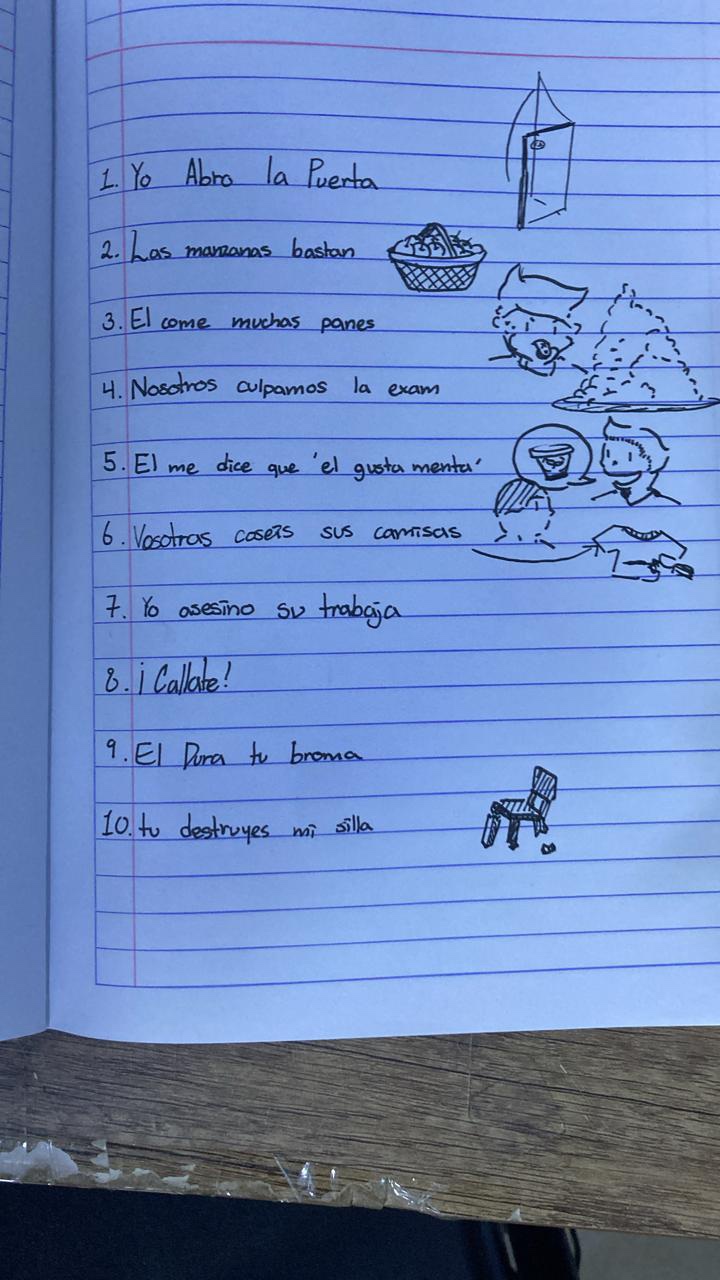 1. Yo Abro la Puerta
2. Las manzanas bastan
3. El come muchas panes
4. Nosotros culpamos la exam
5. El me dice que 'el gusta menta'
6. Vosotras coseis sus camisas
7. Yo asesino su trabaja
8. ¡Callate!
9. El Dura tu broma
10. tu destruyes mi silla